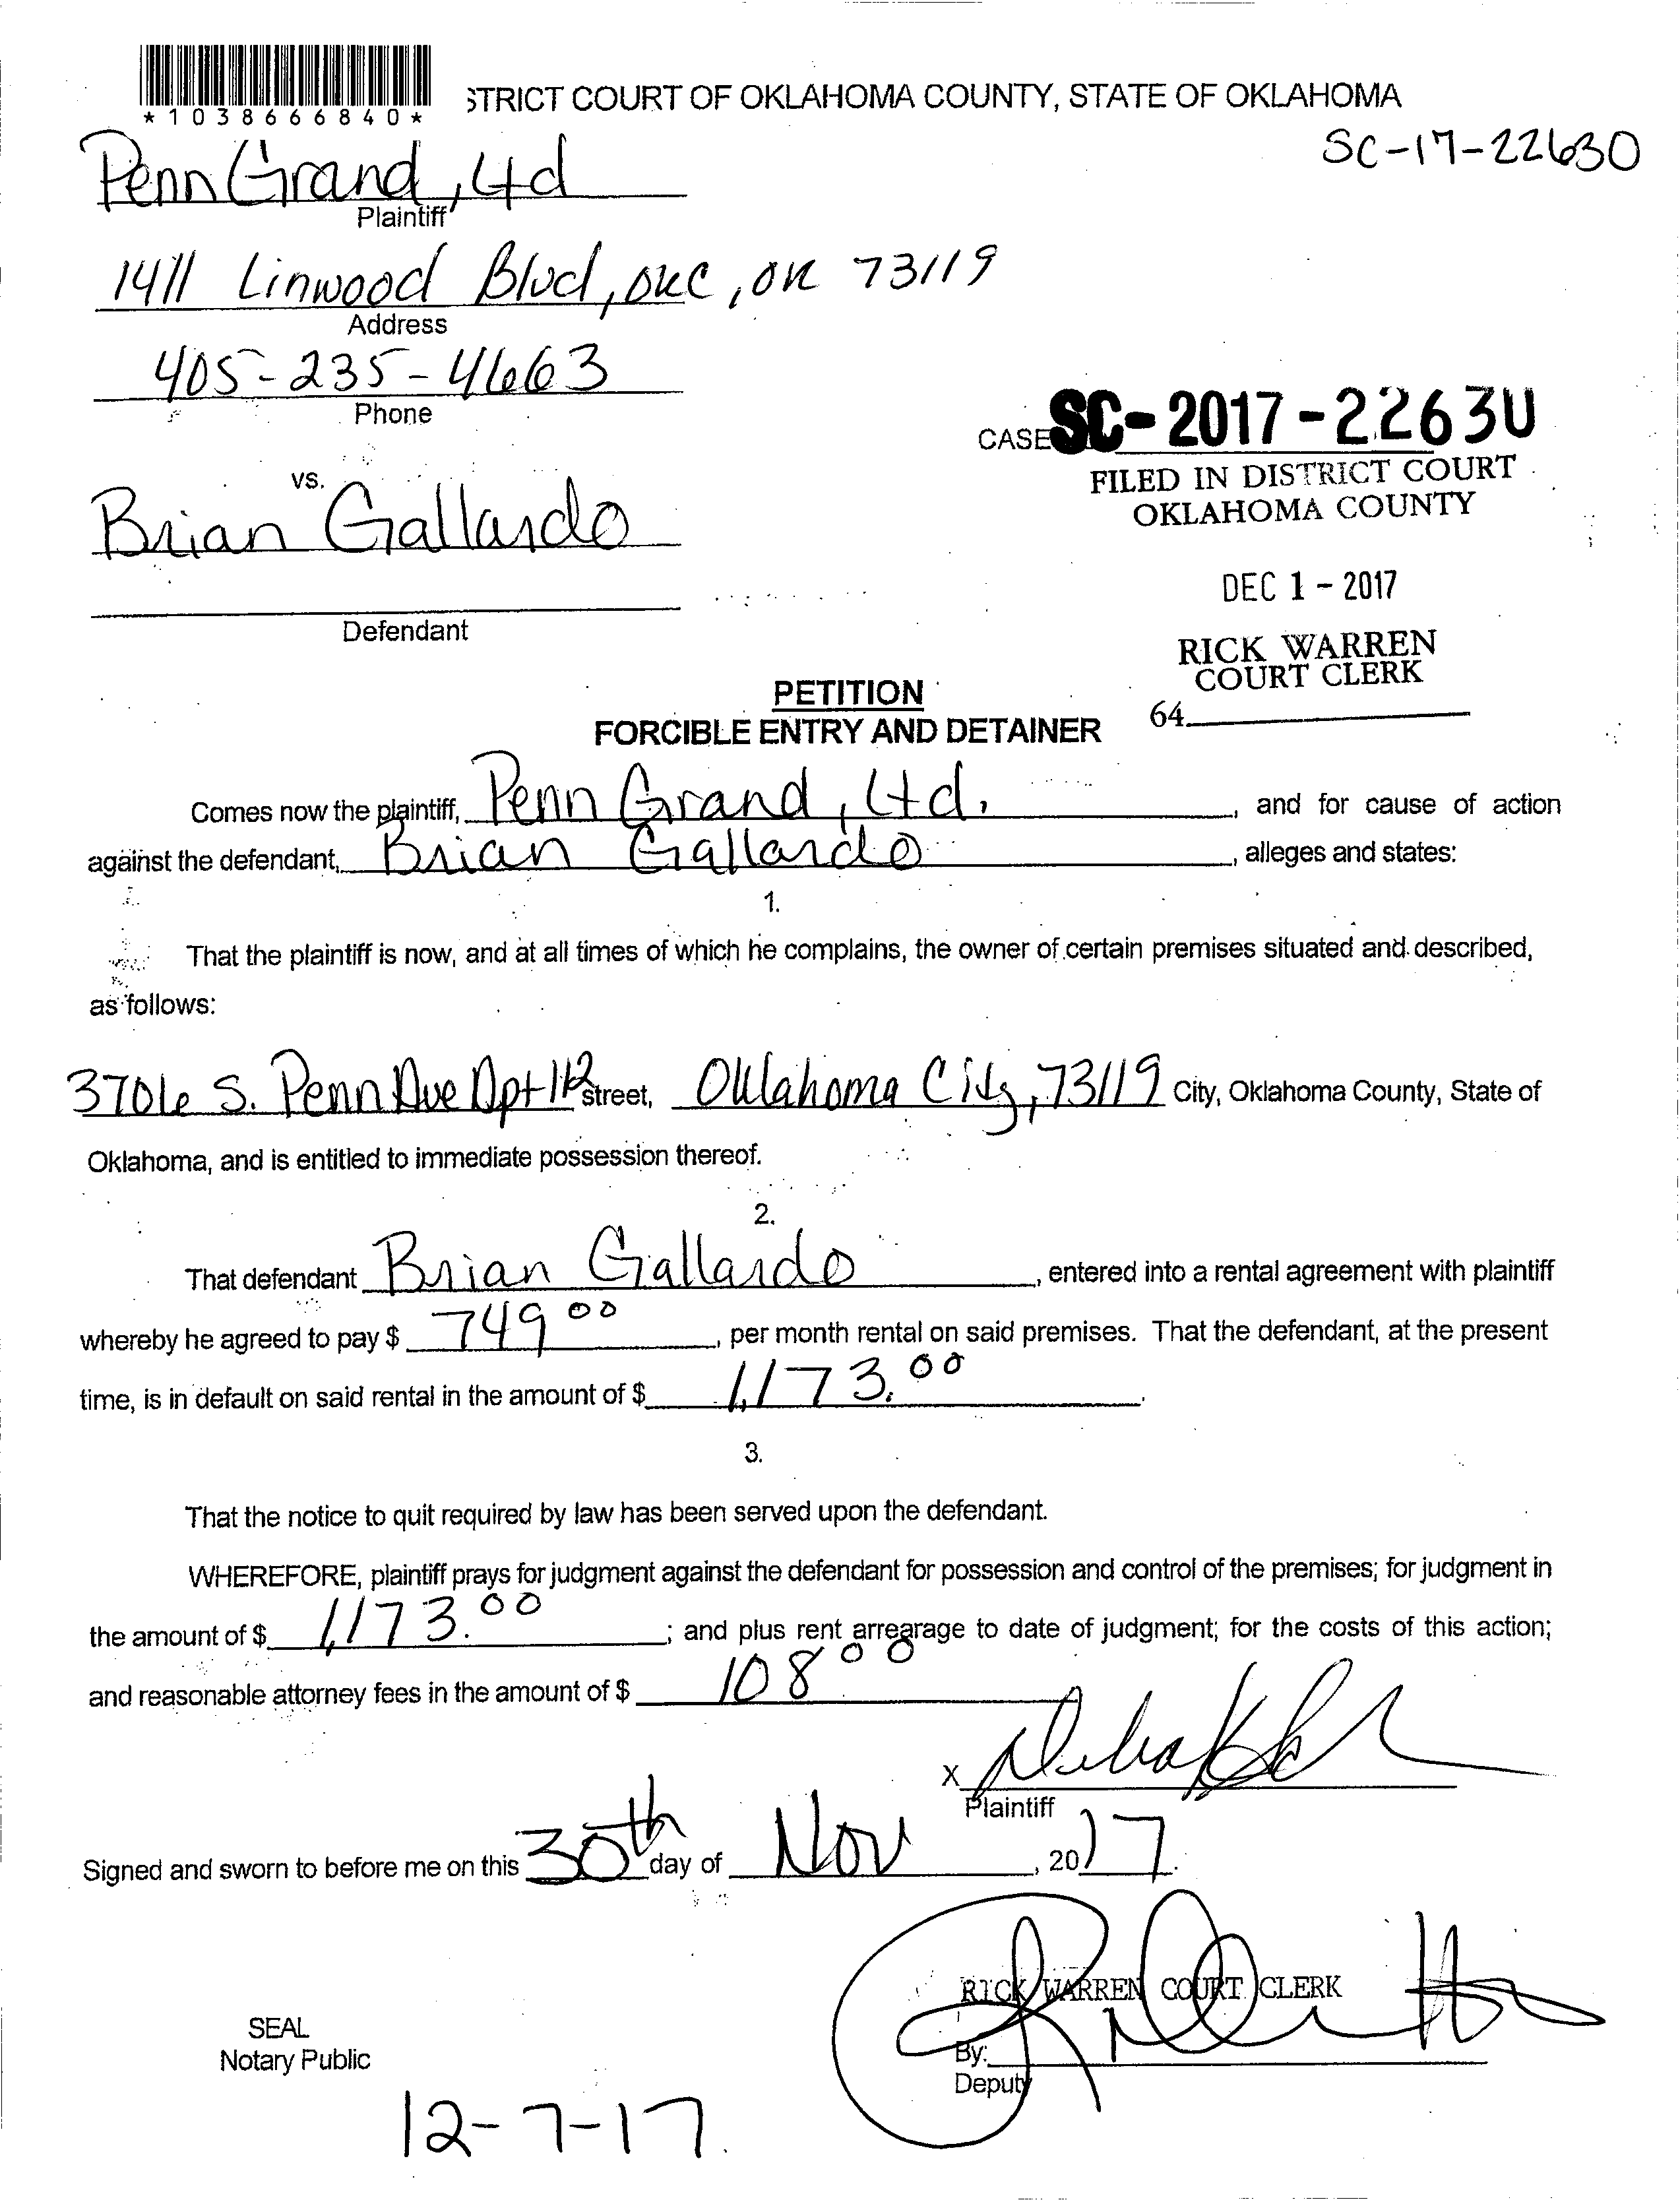 *1038666840*
STRICT COURT OF OKLAHOMA COUNTY, STATE OF OKLAHOMA
SC-17-22630
Penn Grand, Ltd
Plaintiff
1411 Linwood Blvd, OKC, OK 73119
Address
405-235-4663
Phone
CASE SC-2017-22630
FILED IN DISTRICT COURT
OKLAHOMA COUNTY
vs.
Brian Gallardo
DEC 1 - 2017
Defendant
RICK WARREN
COURT CLERK
64
PETITION
FORCIBLE ENTRY AND DETAINER
Comes now the plaintiff, Penn Grand, Ltd. , and for cause of action
against the defendant, Brian Gallardo , alleges and states:
1.
That the plaintiff is now, and at all times of which he complains, the owner of certain premises situated and described,
as follows:
3706 S. Penn Ave Apt 112 street, Oklahoma City, 73119 City, Oklahoma County, State of
Oklahoma, and is entitled to immediate possession thereof.
2.
That defendant Brian Gallardo , entered into a rental agreement with plaintiff
whereby he agreed to pay $ 749 00 , per month rental on said premises. That the defendant, at the present
time, is in default on said rental in the amount of $ 1,173.00 .
3.
That the notice to quit required by law has been served upon the defendant.
WHEREFORE, plaintiff prays for judgment against the defendant for possession and control of the premises; for judgment in
the amount of $ 1,173.00 ; and plus rent arrearage to date of judgment; for the costs of this action;
and reasonable attorney fees in the amount of $ 108 00
X
Plaintiff
Signed and sworn to before me on this 30th day of Nov , 2017.
RICK WARREN COURT CLERK
SEAL
Notary Public
By:
Deputy
12-7-17